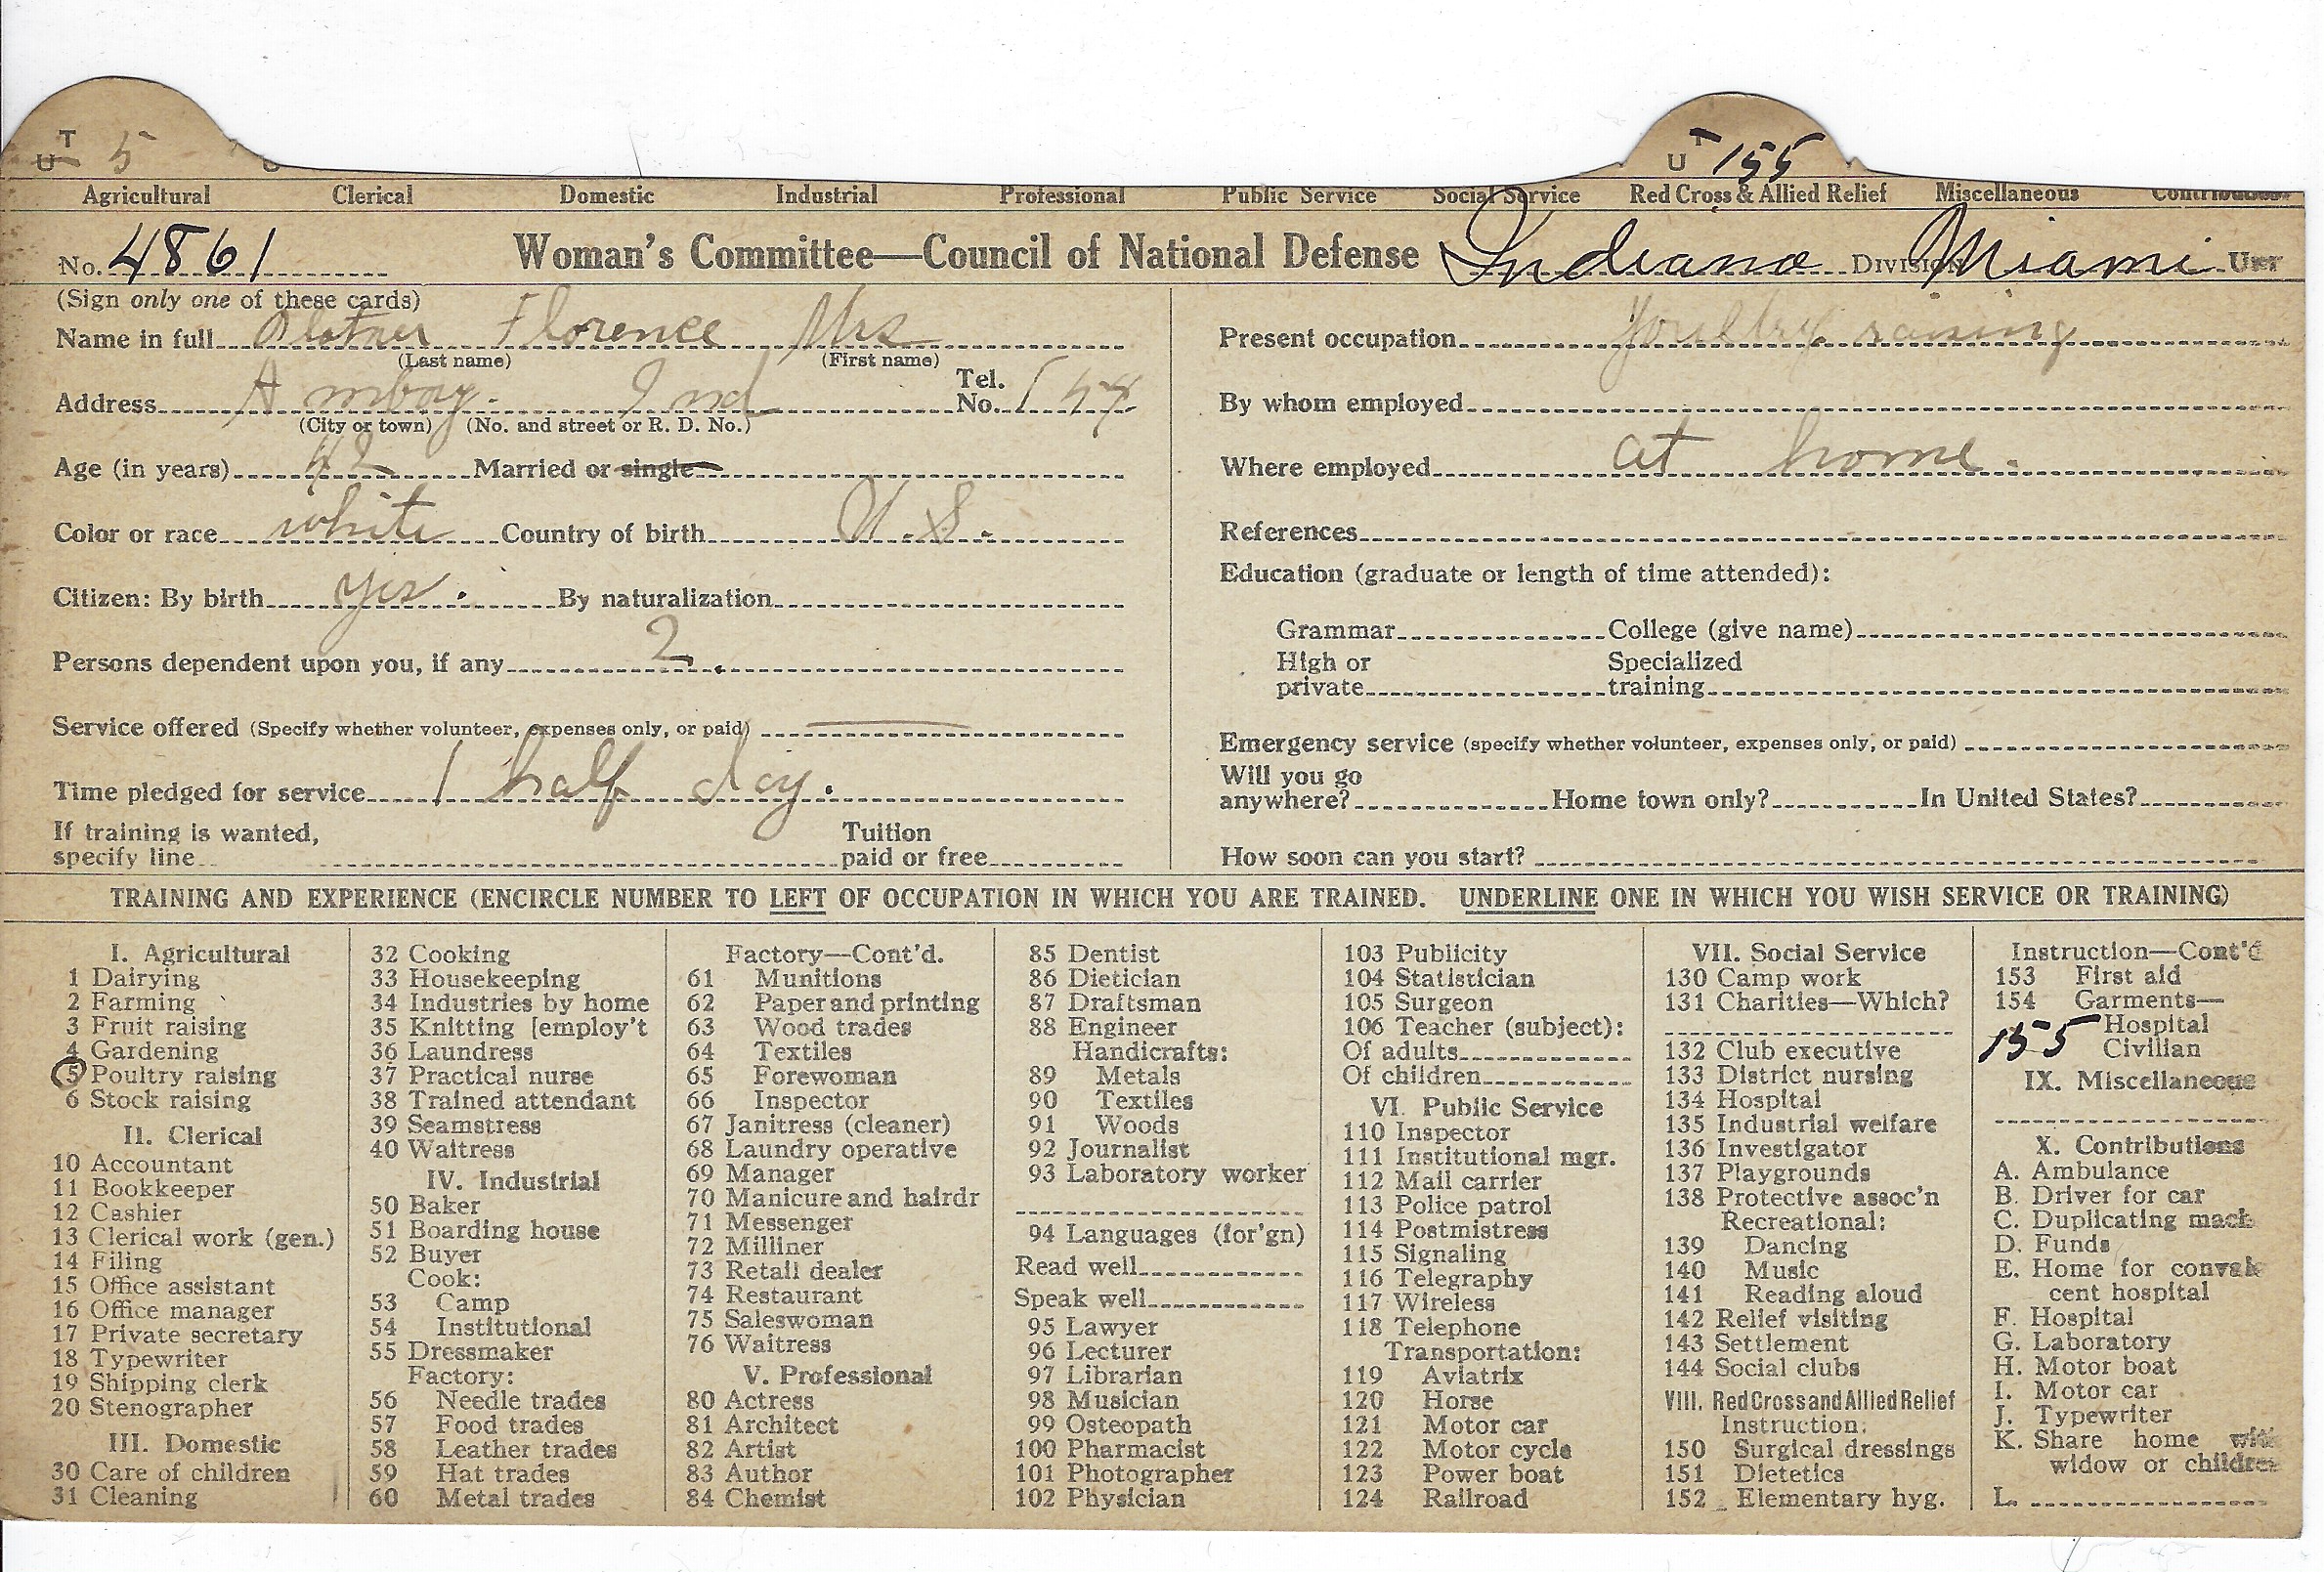 T
U 5
T
U 155
Agricultural Clerical Domestic Industrial Professional Public Service Social Service Red Cross & Allied Relief Miscellaneous Contributions
No. 4861 Woman's Committee—Council of National Defense Indiana Division Miami Unit
(Sign only one of these cards)
Name in full Florence Mrs
(Last name) (First name)
Address Amboy. Ind Tel. No. 144
(City or town) (No. and street or R. D. No.)
Age (in years) 42 Married or single
Color or race white Country of birth U.S.
Citizen: By birth yes. By naturalization
Persons dependent upon you, if any 2.
Service offered (Specify whether volunteer, expenses only, or paid)
Time pledged for service 1 half day.
If training is wanted, specify line Tuition paid or free
Present occupation Poultry raising
By whom employed
Where employed at home.
References
Education (graduate or length of time attended):
Grammar College (give name)
High or private Specialized training
Emergency service (specify whether volunteer, expenses only, or paid)
Will you go anywhere? Home town only? In United States?
How soon can you start?
TRAINING AND EXPERIENCE (ENCIRCLE NUMBER TO LEFT OF OCCUPATION IN WHICH YOU ARE TRAINED. UNDERLINE ONE IN WHICH YOU WISH SERVICE OR TRAINING)
I. Agricultural
1 Dairying
2 Farming
3 Fruit raising
4 Gardening
5 Poultry raising
6 Stock raising
II. Clerical
10 Accountant
11 Bookkeeper
12 Cashier
13 Clerical work (gen.)
14 Filing
15 Office assistant
16 Office manager
17 Private secretary
18 Typewriter
19 Shipping clerk
20 Stenographer
III. Domestic
30 Care of children
31 Cleaning
32 Cooking
33 Housekeeping
34 Industries by home
35 Knitting [employ't
36 Laundress
37 Practical nurse
38 Trained attendant
39 Seamstress
40 Waitress
IV. Industrial
50 Baker
51 Boarding house
52 Buyer
Cook:
53 Camp
54 Institutional
55 Dressmaker
Factory:
56 Needle trades
57 Food trades
58 Leather trades
59 Hat trades
60 Metal trades
Factory—Cont'd.
61 Munitions
62 Paper and printing
63 Wood trades
64 Textiles
65 Forewoman
66 Inspector
67 Janitress (cleaner)
68 Laundry operative
69 Manager
70 Manicure and hairdr
71 Messenger
72 Milliner
73 Retail dealer
74 Restaurant
75 Saleswoman
76 Waitress
V. Professional
80 Actress
81 Architect
82 Artist
83 Author
84 Chemist
85 Dentist
86 Dietician
87 Draftsman
88 Engineer
Handicrafts:
89 Metals
90 Textiles
91 Woods
92 Journalist
93 Laboratory worker
94 Languages (for'gn)
Read well
Speak well
95 Lawyer
96 Lecturer
97 Librarian
98 Musician
99 Osteopath
100 Pharmacist
101 Photographer
102 Physician
103 Publicity
104 Statistician
105 Surgeon
106 Teacher (subject):
Of adults
Of children
VI. Public Service
110 Inspector
111 Institutional mgr.
112 Mail carrier
113 Police patrol
114 Postmistress
115 Signaling
116 Telegraphy
117 Wireless
118 Telephone
Transportation:
119 Aviatrix
120 Horse
121 Motor car
122 Motor cycle
123 Power boat
124 Railroad
VII. Social Service
130 Camp work
131 Charities—Which?
132 Club executive
133 District nursing
134 Hospital
135 Industrial welfare
136 Investigator
137 Playgrounds
138 Protective assoc'n
Recreational:
139 Dancing
140 Music
141 Reading aloud
142 Relief visiting
143 Settlement
144 Social clubs
VIII. Red Cross and Allied Relief
Instruction:
150 Surgical dressings
151 Dietetics
152 Elementary hyg.
Instruction—Cont'd
153 First aid
154 Garments—
Hospital
155 Civilian
IX. Miscellaneous
X. Contributions
A. Ambulance
B. Driver for car
C. Duplicating mach
D. Funds
E. Home for conval
cent hospital
F. Hospital
G. Laboratory
H. Motor boat
I. Motor car
J. Typewriter
K. Share home with
widow or children
L.